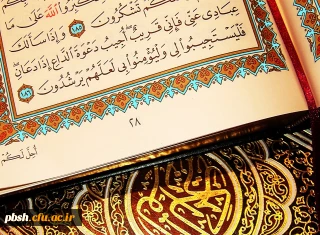 تَشْكُرُونَ ١٨٥ وَإِذَا سَأَلَكَ
عِبَادِى عَنِّى فَإِنِّى قَرِيبٌ أُجِيبُ دَعْوَةَ الدَّاعِ إِذَا دَعَانِ
فَلْيَسْتَجِيبُوا لِى وَلْيُؤْمِنُوا بِى لَعَلَّهُمْ يَرْشُدُونَ ١٨٦
٢٨
أُحِلَّ لَكُمْ
pbsh.cfu.ac.ir